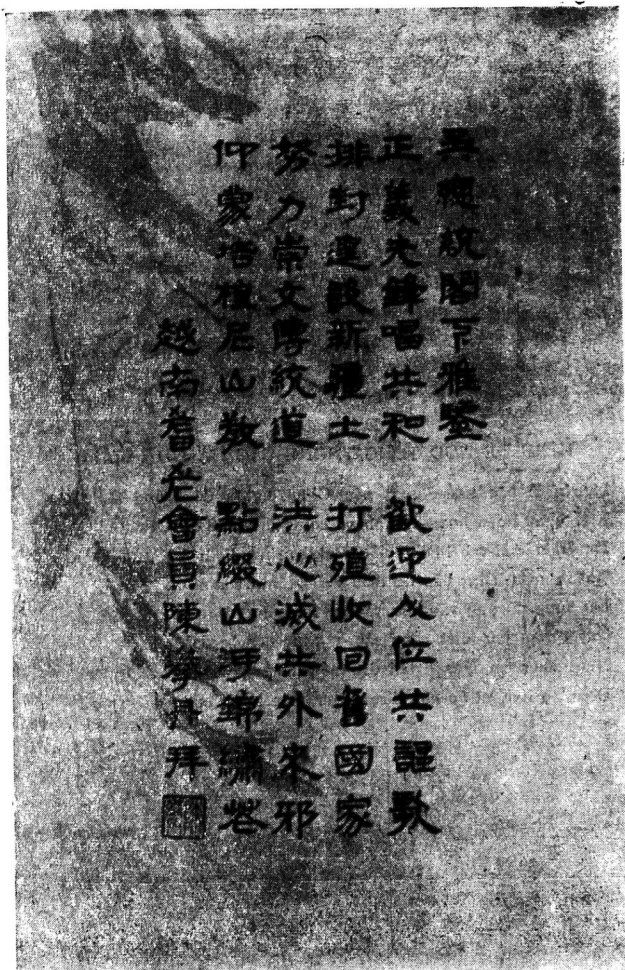 吳總統閣下雅鑒
正義先鋒唱共和 歡迎位共謳歌
排封建設新疆土 打殖收回舊國家
努力崇文傳統道 決心滅共外來邪
仰蒙培植尼山教 點綴山河錦繡花
越南耆老會員陳丹拜